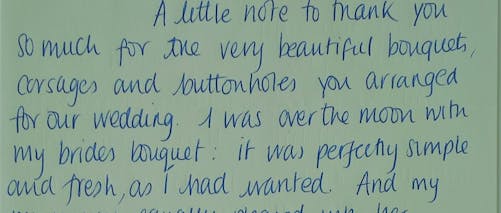 A little note to thank you
so much for the very beautiful bouquets,
corsages and buttonholes you arranged
for our wedding. I was over the moon with
my brides bouquet: it was perfectly simple
and fresh, as I had wanted. And my
equally pleased with her